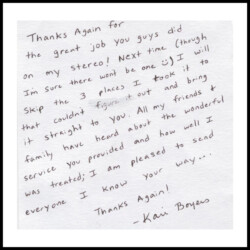 Thanks Again for
the great job you guys did
on my stereo! Next time (though
Im sure there wont be one :)) I will
skip the 3 places I took it to
that couldnt figure it out and bring
it straight to you. All my friends &
family have heard about the wonderful
service you provided and how well I
was treated; I am pleased to send
everyone I know your way...
Thanks Again!
-Kari